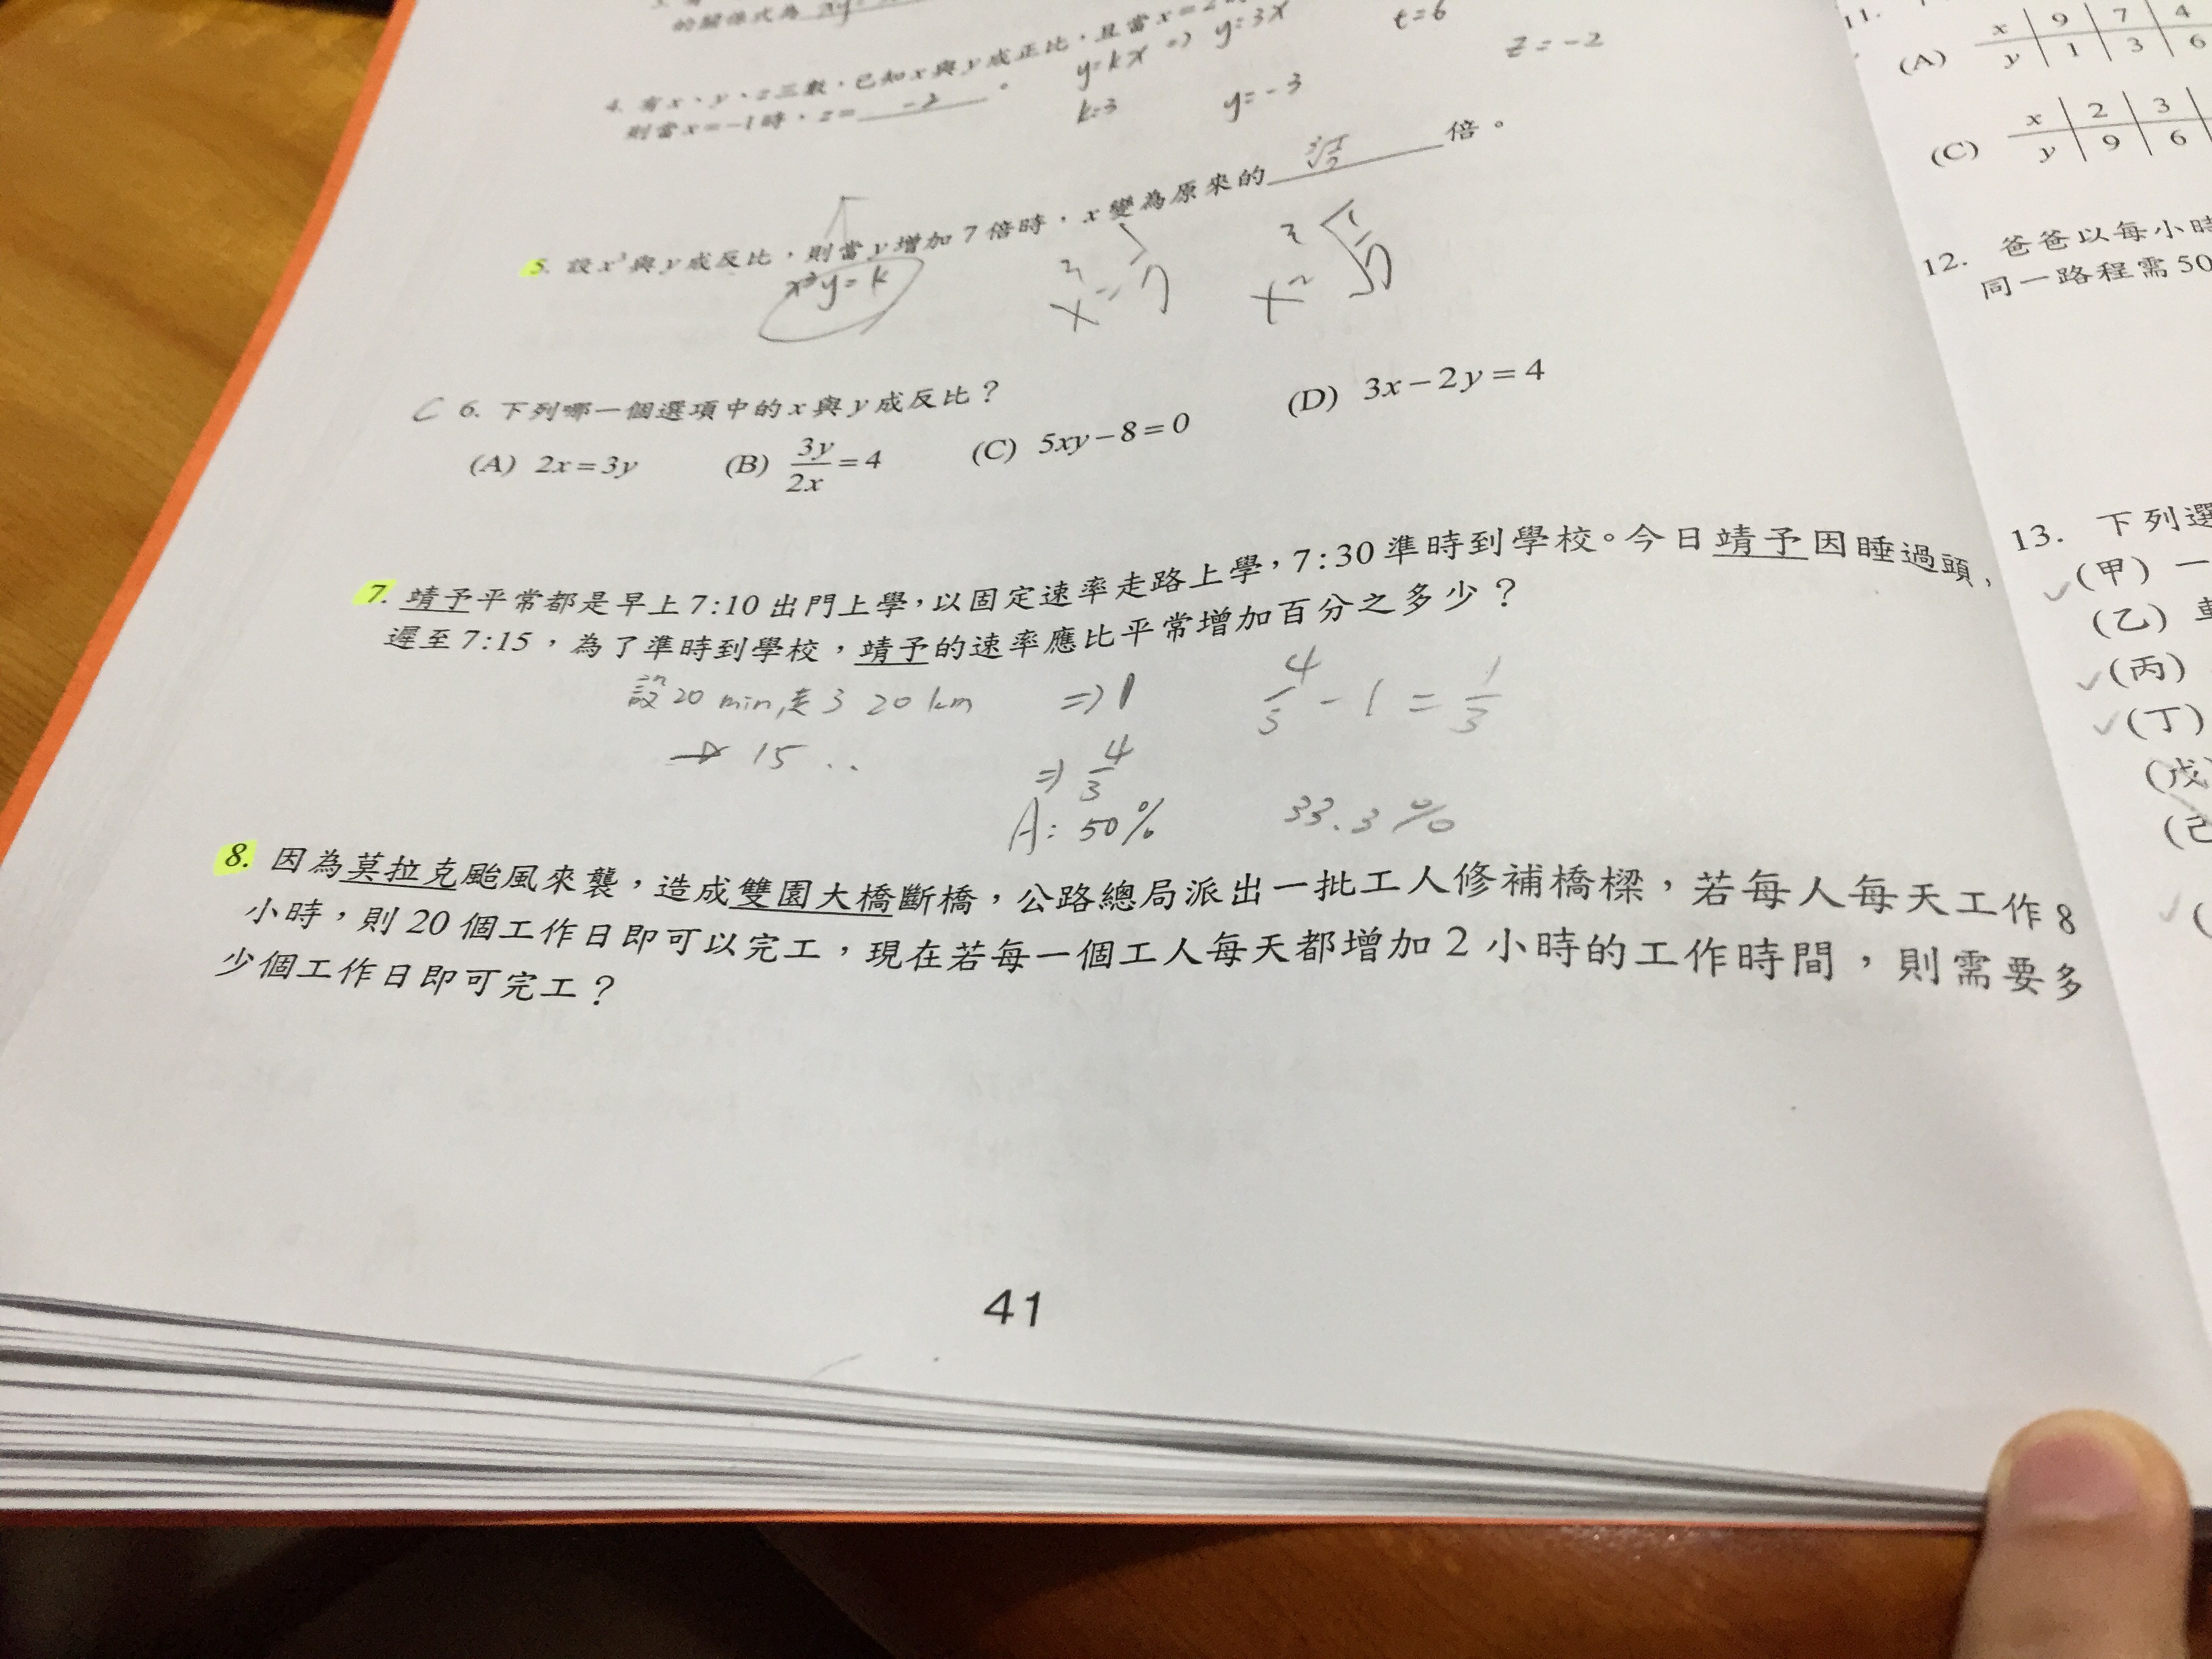 的關係式為
4. 有x、y、z三數，已知x與y成正比，且當x=2
y=kx ⇒ y=3x
t=6
z=-2
則當x=-1時，z= -2 。
k=3
y=-3
5. 設x³與y成反比，則當y增加7倍時，x變為原來的 倍。
x³y=k
C 6. 下列哪一個選項中的x與y成反比？
(A) 2x=3y (B) 3y/2x=4 (C) 5xy-8=0 (D) 3x-2y=4
7. 靖予平常都是早上7:10出門上學，以固定速率走路上學，7:30準時到學校。今日靖予因睡過頭，
遲至7:15，為了準時到學校，靖予的速率應比平常增加百分之多少？
設20 min,走3 20 km ⇒1 4/3-1=1/3
→ 15 ‥ ⇒4/3
A: 50% 33.3%
8. 因為莫拉克颱風來襲，造成雙園大橋斷橋，公路總局派出一批工人修補橋樑，若每人每天工作8
小時，則20個工作日即可以完工，現在若每一個工人每天都增加2小時的工作時間，則需要多
少個工作日即可完工？
41
11.
(A) x 9 7 4
y 1 3 6
(C) x 2 3
y 9 6
12. 爸爸以每小時
同一路程需50
13. 下列選
(甲) 一
(乙)
(丙)
(丁)
(戊)
(己
(